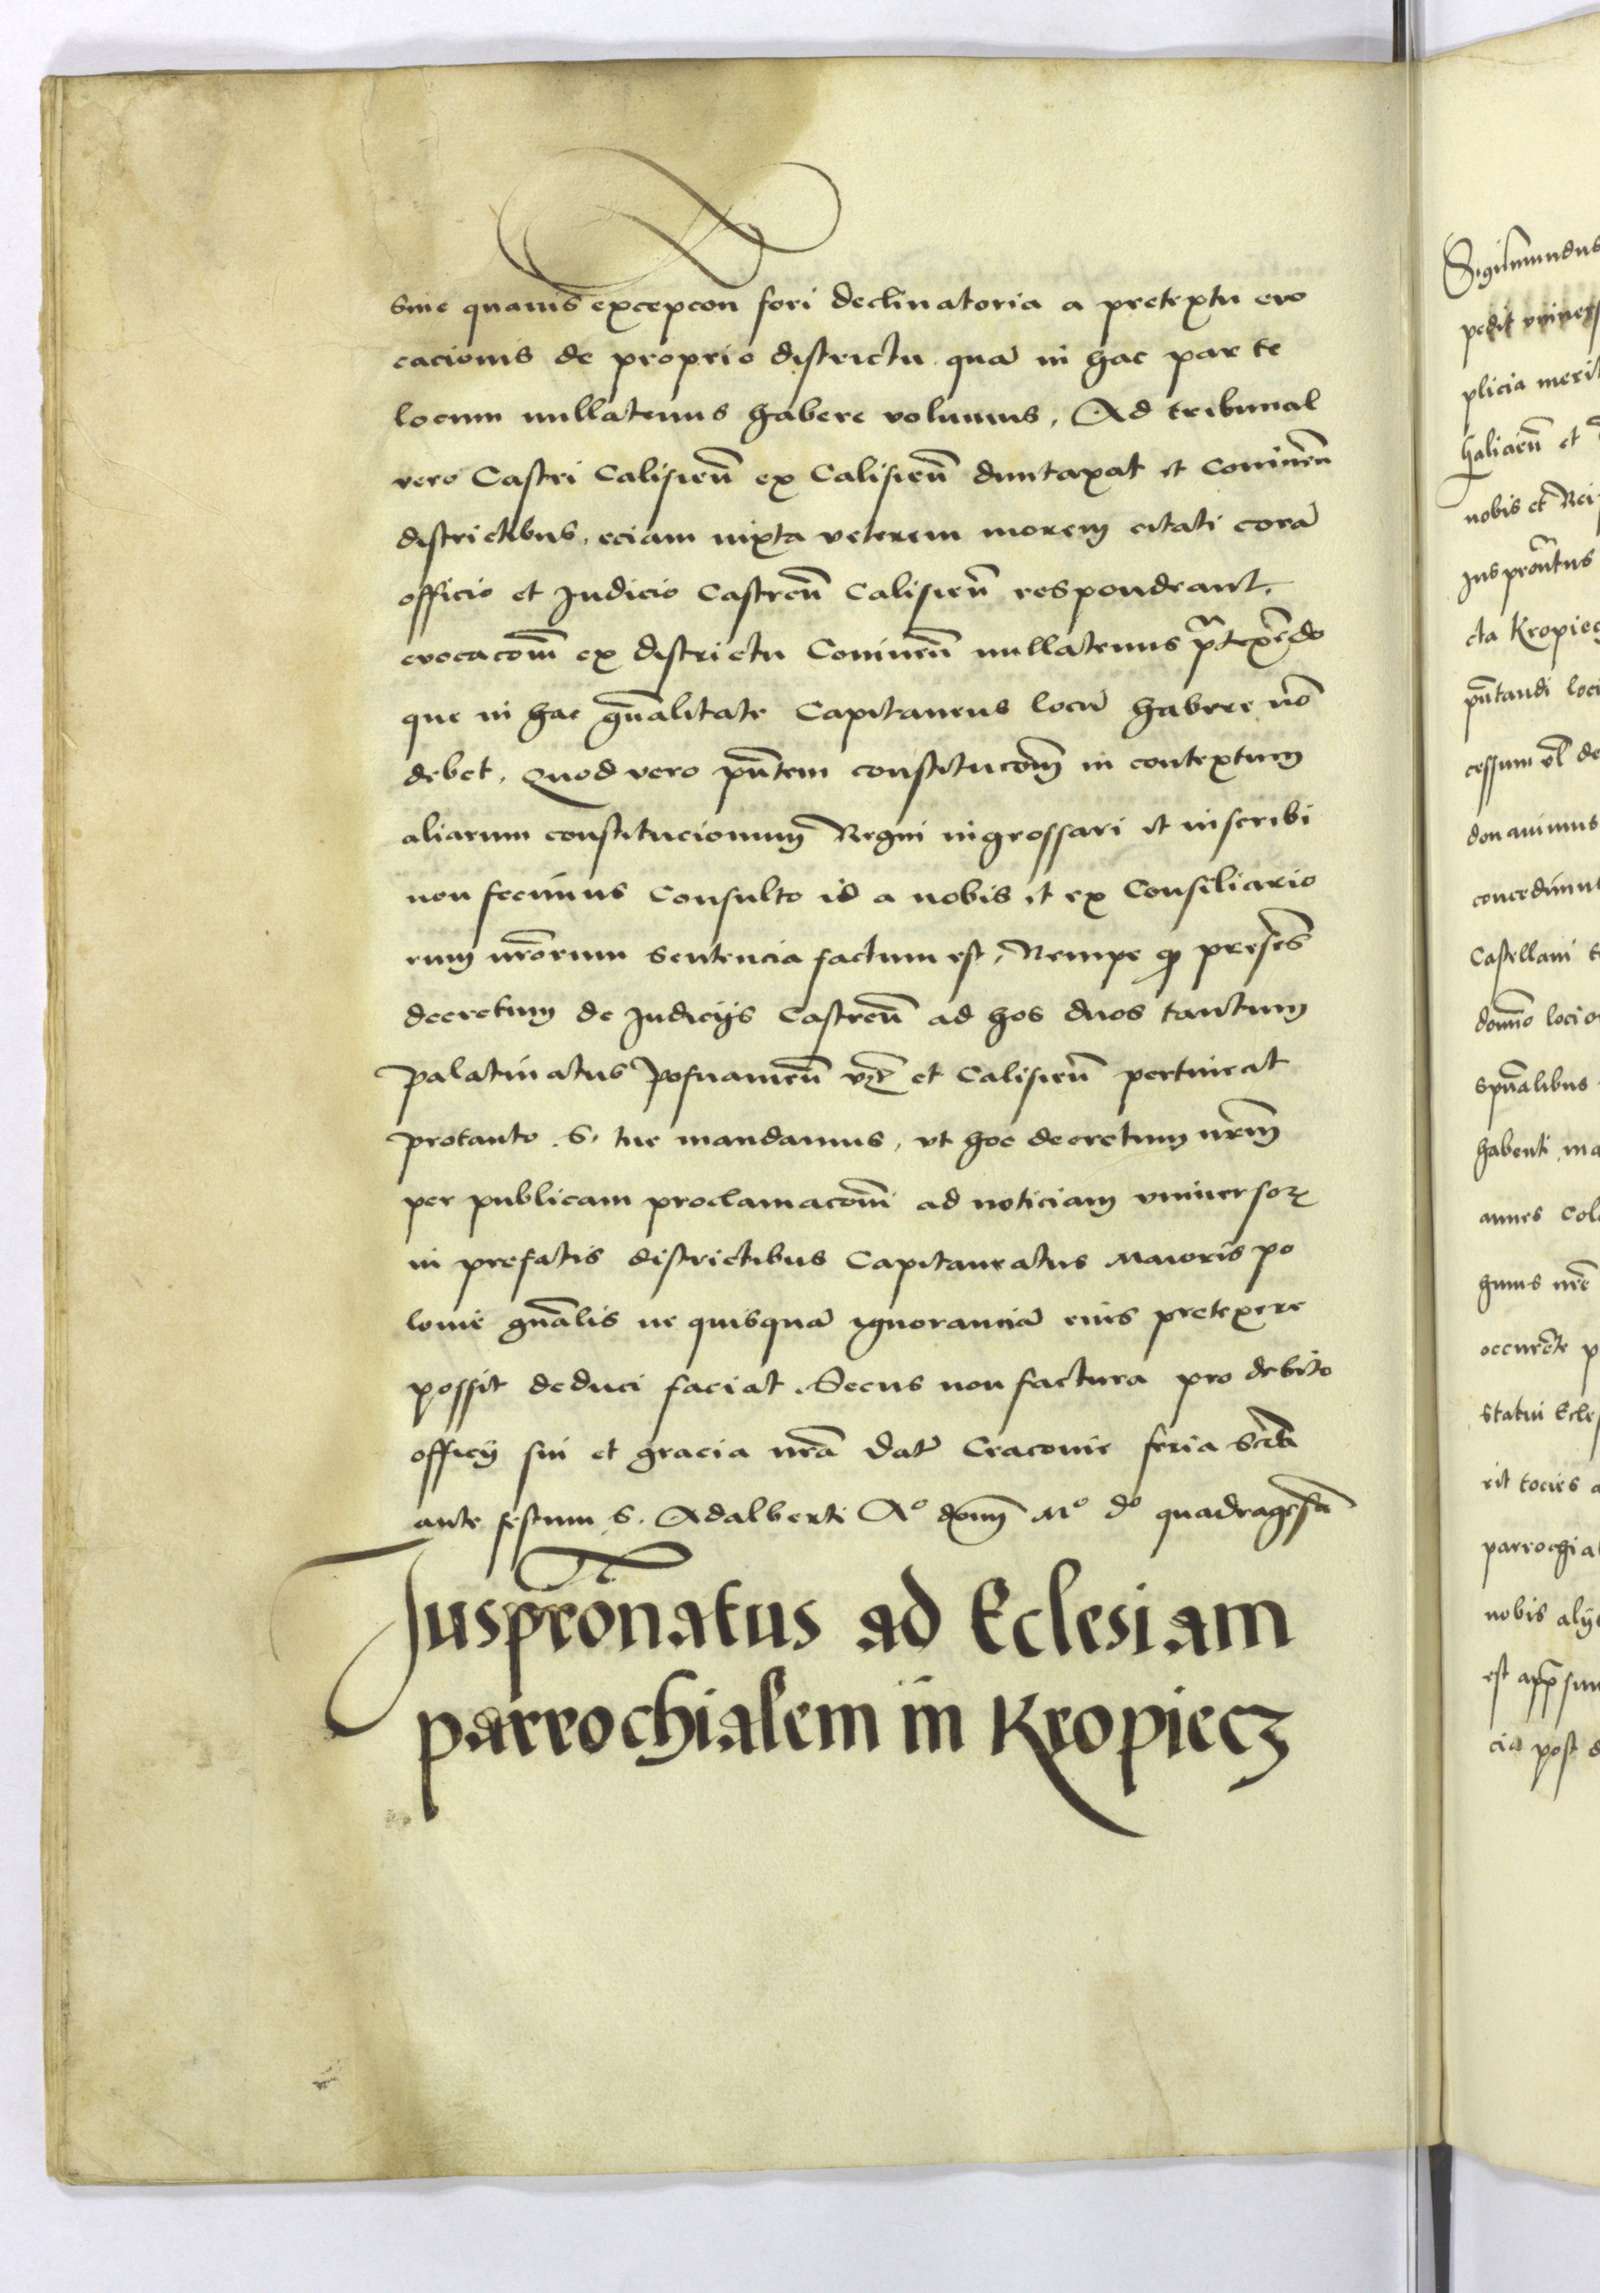 sine quauis excepcon fori declinatoria a pretextu evo
cacionis de proprio districtu quā in hac parte
locum nullatenus habere volumus, Ad tribunal
vero Castri Calisień ex Calisień duntaxat et Coninēn
districtibus, eciam iuxta veterem morem citati corā
officio et Judicio Castreń Calisień respondeant,
evocacom̄ ex districtu Coninēn nullatenus p̄texēdo
que in hac gn̄alitate Capitaneus locū habere nō
debet, Quod vero pn̄tem constitucom̄ in contextum
aliarum constitucionum Regni ingrossari et inscribi
non fecimus Consulto id a nobis et ex Consiliario
rum nr̄orum sentencia factum est, Nempe qꝫ presēs
decretum de Judicijs Castreń ad hos duos tantum
palatinatus Posnanień vꝫ et Calisień pertineat
protanto S. tue mandamus, vt hoc decretum nr̄m
per publicam proclamacom̄ ad noticiam vniuersoꝝ
in prefatis districtibus Capitaneatus Maioris po
lonie gn̄alis ne quisquā ignoranciā eius pretexere
possit deduci faciat. Secus non factura pro debito
officij sui et gracia nr̄a Dat̄ Cracouie feria Scd̄a
ante festum S. Adalberti A° dom̄ M° d° quadragesīo
Juspr̄onatus ad Eclesiam
parrochialem in Kropiecz
Sigismundus
plicia merit
haliciēn et
nobis et Rei
Juspr̄ontus
cta Kropiecz
pn̄tandi loci
cessum vl̄ de
donauimus
concedimus
Castellani
domīo loci
spūalibus
habenti, ma
annes Col
gnus nr̄e
occurēte p
Statui Ecles
rit tocies a
parrochia
nobis alij
est app̄sum
cia post d